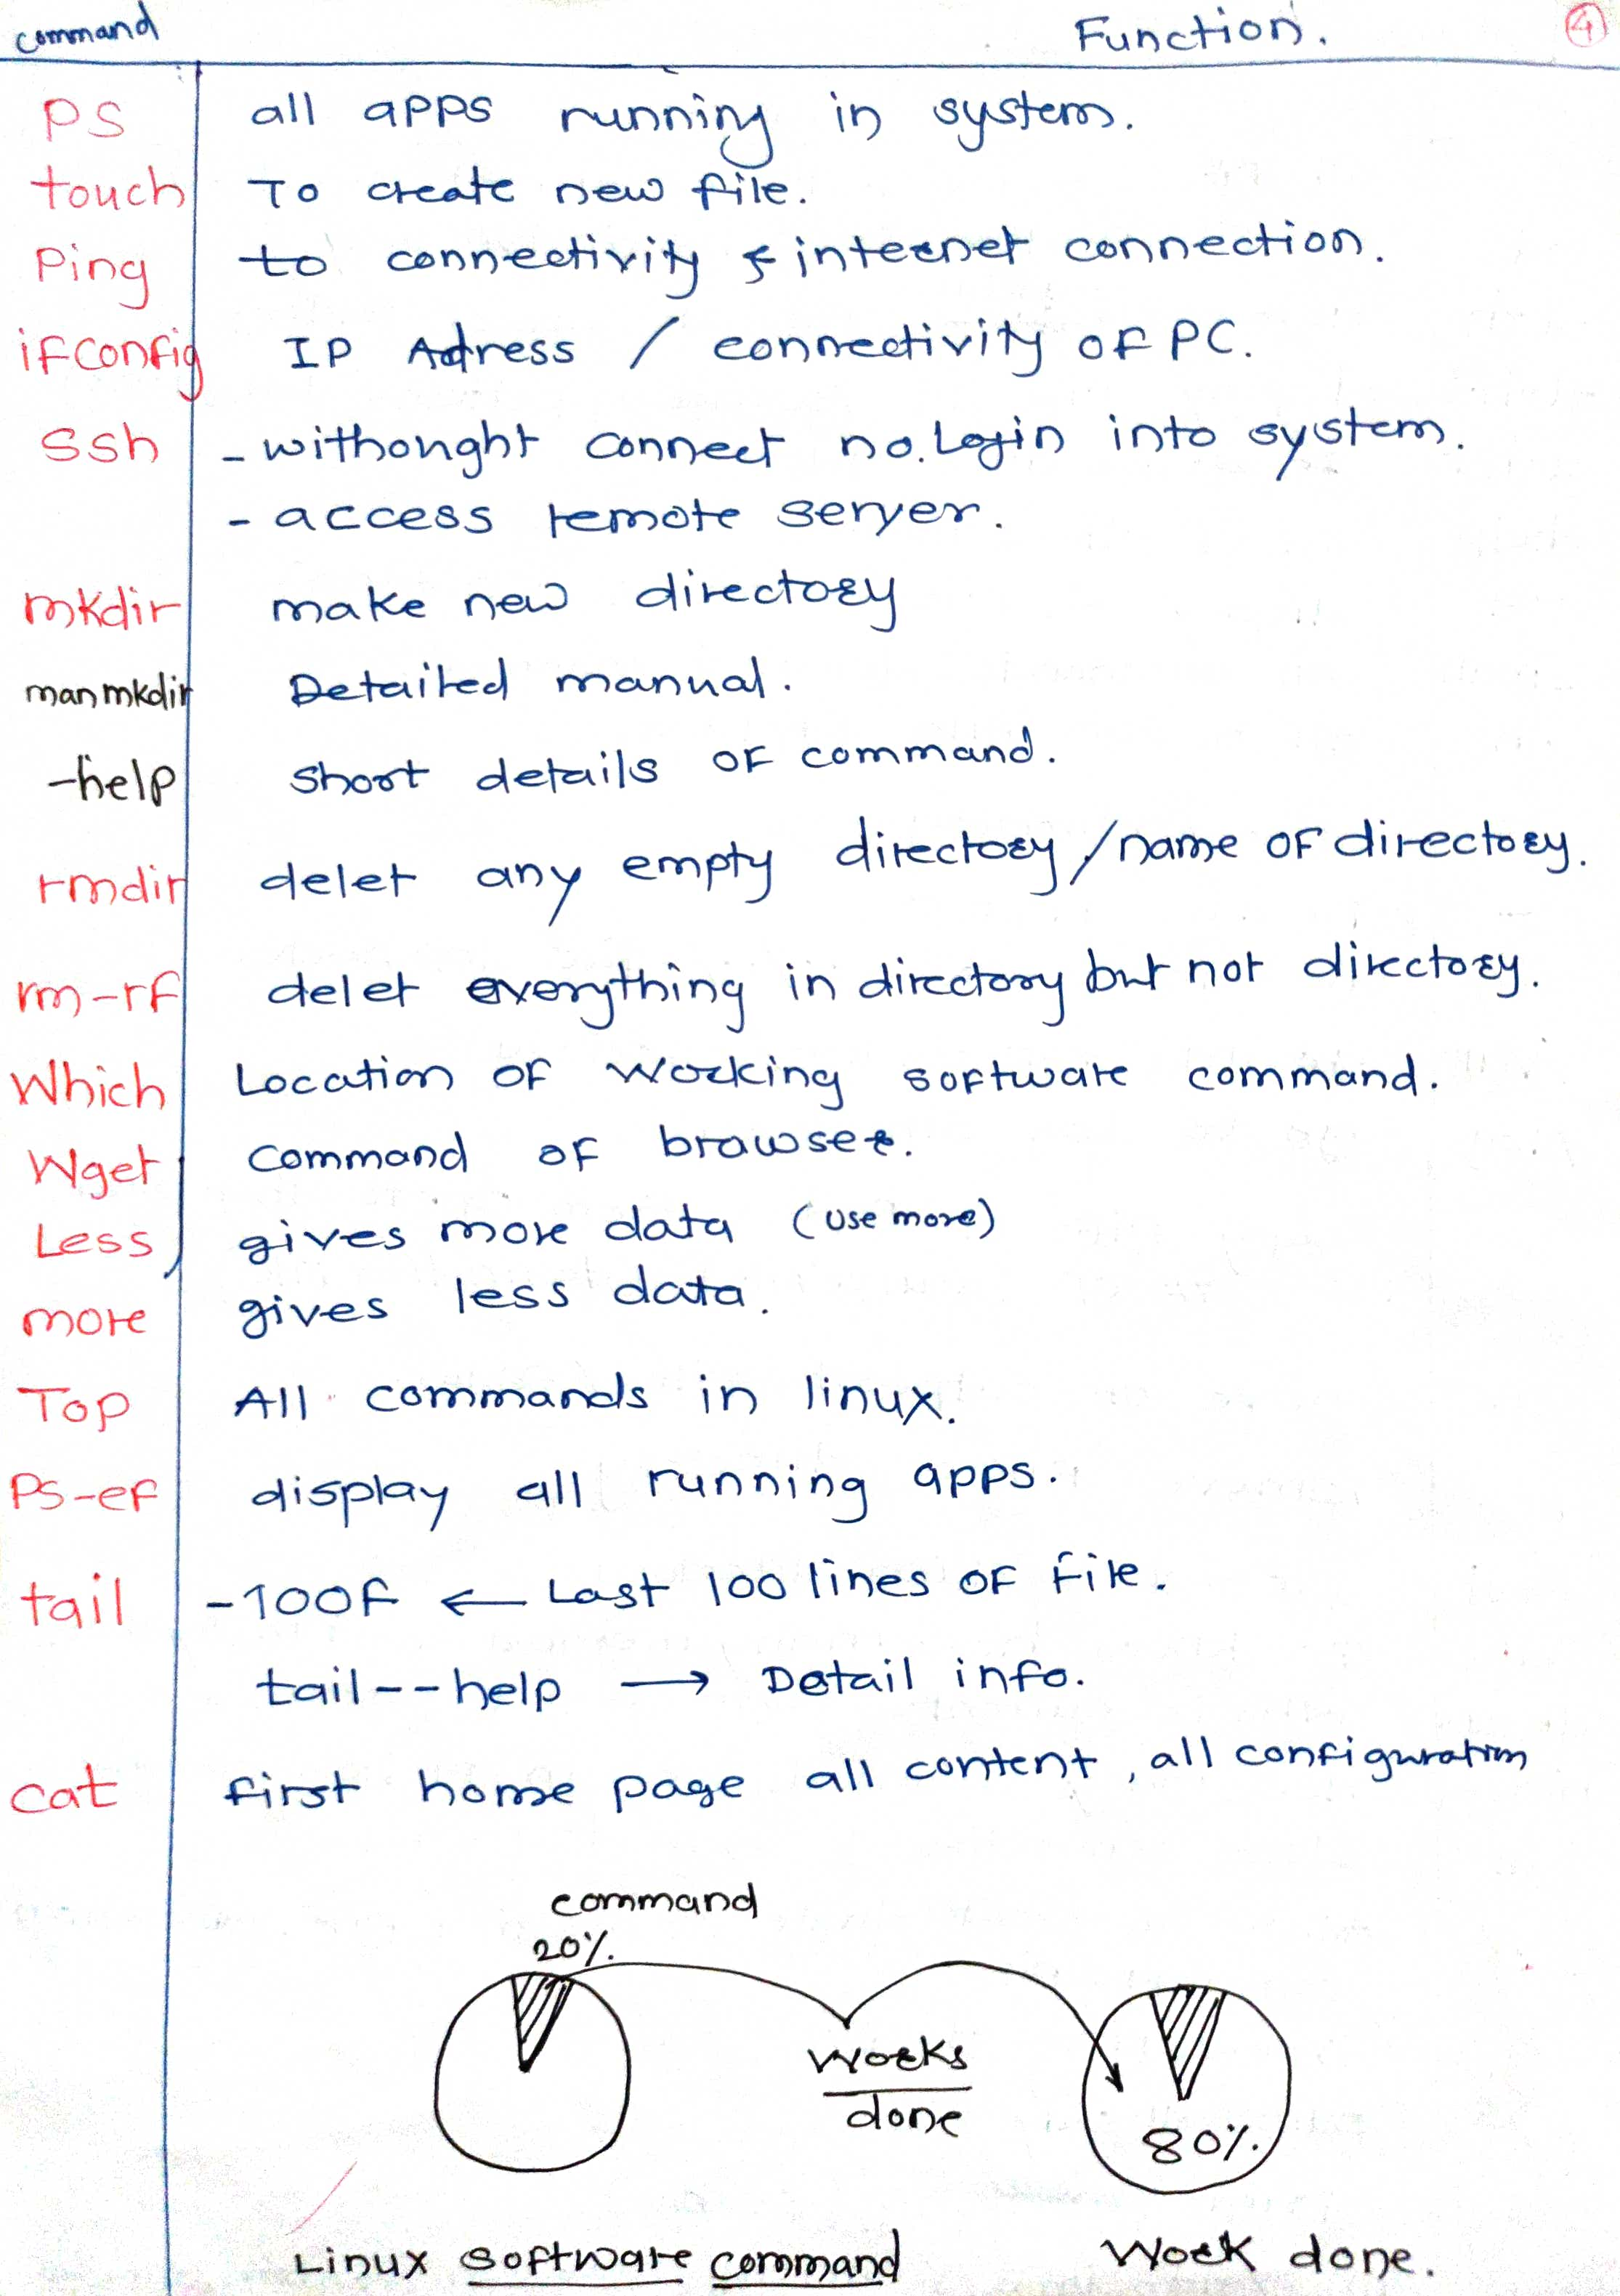 command Function. 4
PS all apps running in system.
touch To create new file.
Ping to connectivity & internet connection.
ifconfig IP Adress / connectivity of PC.
Ssh - withought connect no. Login into system.
- access remote server.
mkdir make new directory
man mkdir Detailed manual.
-help short details of command.
rmdir delet any empty directory / name of directory.
rm-rf delet everything in directory but not directory.
Which Location of working software command.
Wget command of browser.
Less gives more data (use more)
more gives less data.
Top All commands in linux.
PS-ef display all running apps.
tail -100f ← Last 100 lines of file.
tail--help → Detail info.
cat first home page all content, all configuration
command
20%.
Works
done
80%.
Linux software command Work done.